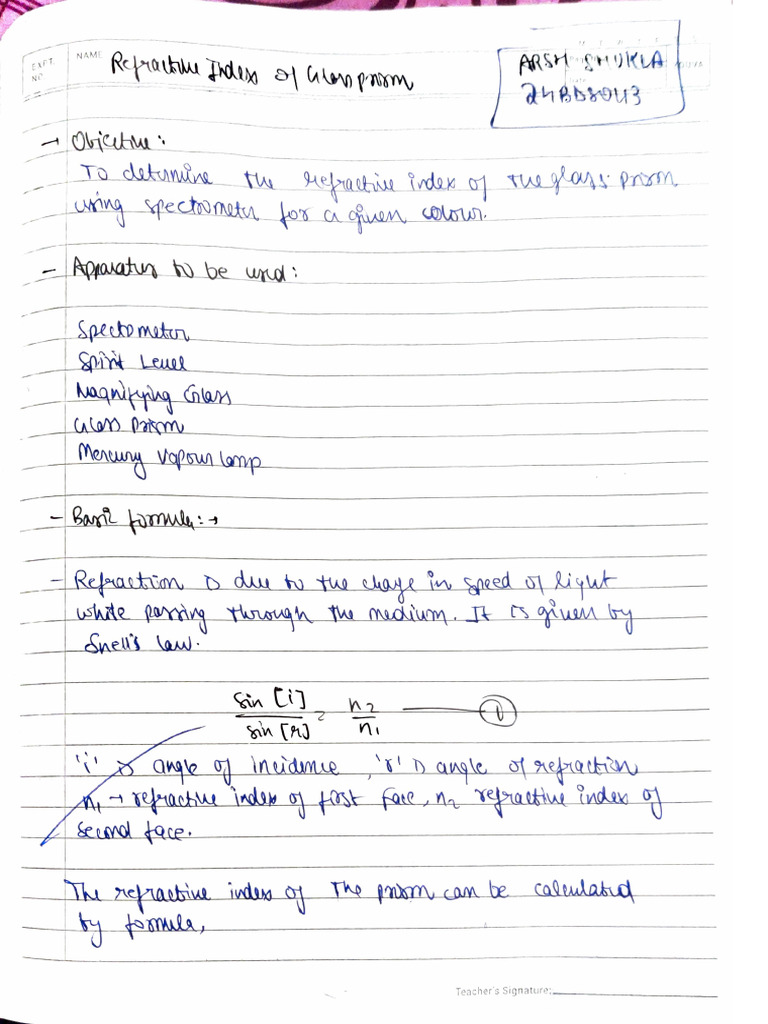 EXPT. NO.
NAME
Refractive Index of Glass prism
ARSH SHUKLA
24BDS043
→ Objective:
To determine the refractive index of the glass prism
using spectrometer for a given colour.
- Apparatus to be used:
Spectrometer
Spirit Level
Magnifying Glass
Glass Prism
Mercury Vapour lamp
- Basic formula:→
- Refraction is due to the change in speed of light
while passing through the medium. It is given by
Snell's law.
sin [i] / sin [r] = n2 / n1 —— ①
'i' is angle of incidence, 'r' is angle of refraction
n1 → refractive index of first face, n2 refractive index of
second face.
The refractive index of the prism can be calculated
by formula,
Teacher's Signature: